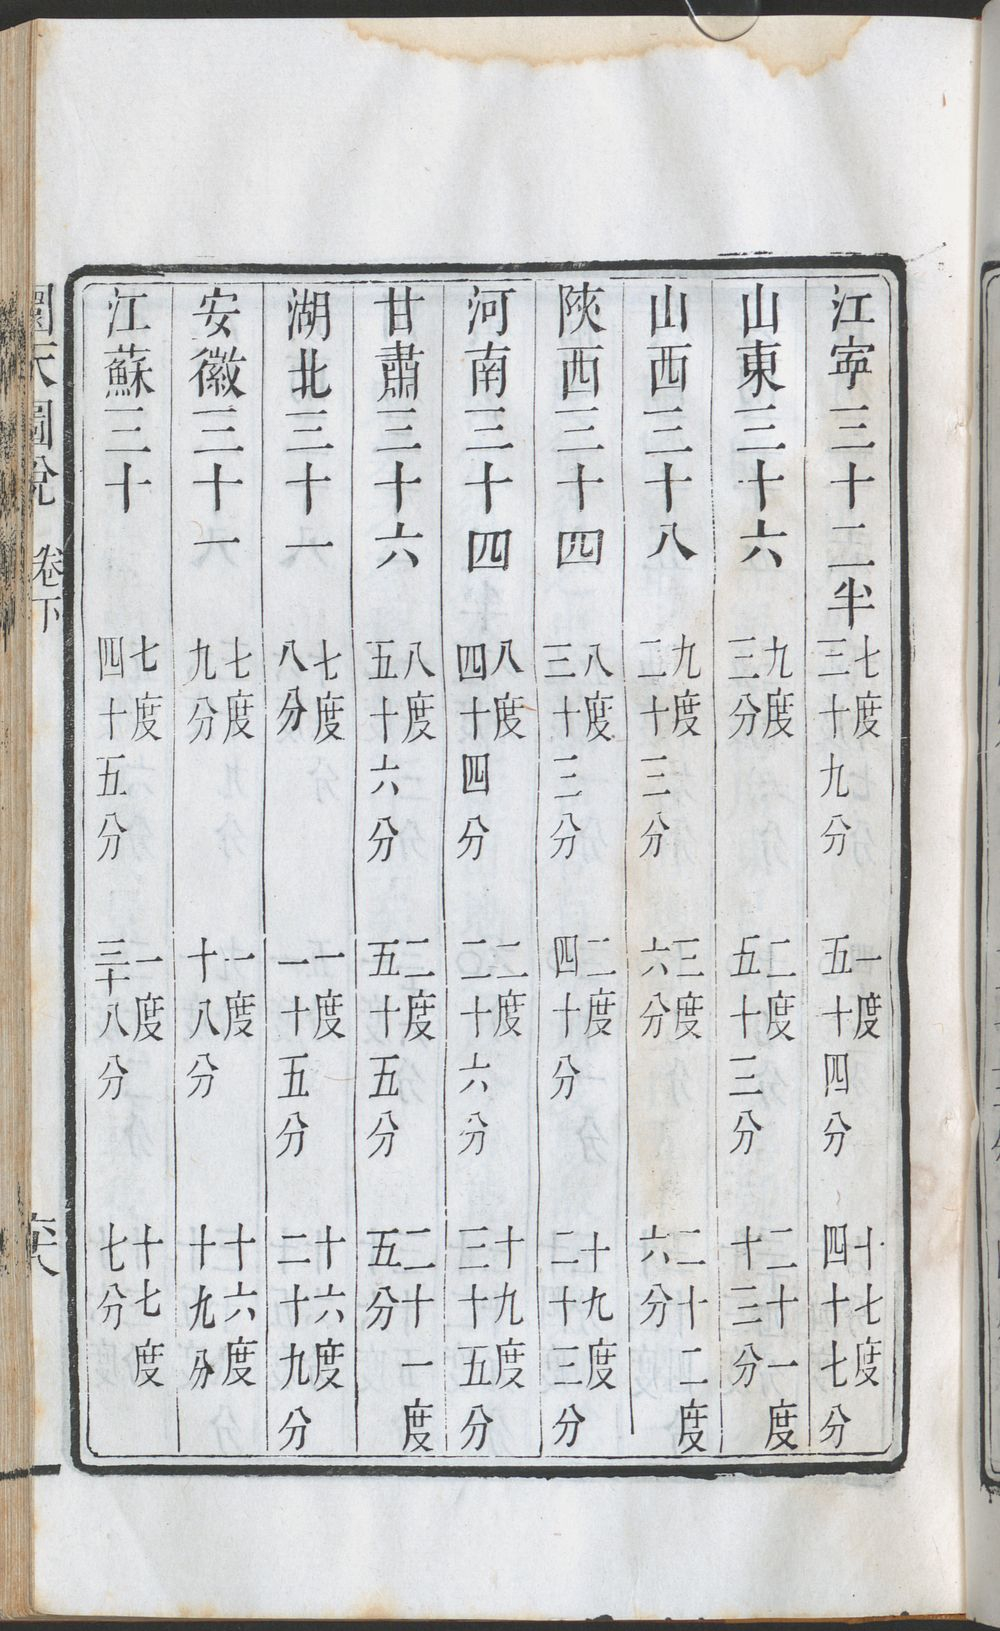 江寕三十二半 七度三十九分 一度五十四分 十七度四十七分
山東三十六 九度三分 二度五十三分 二十一度十三分
山西三十八 九度二十三分 三度六分 二十二度六分
陝西三十四 八度三十三分 二度四十分 十九度二十三分
河南三十四 八度四十四分 二度二十六分 十九度三十五分
甘肅三十六 八度五十六分 二度五十五分 二十一度五分
湖北三十一 七度八分 一度一十五分 十六度二十九分
安徽三十一 七度九分 一度十八分 十六度十九分
江蘇三十 七度四十五分 一度三十八分 十七度七分
圜天圖說 卷下